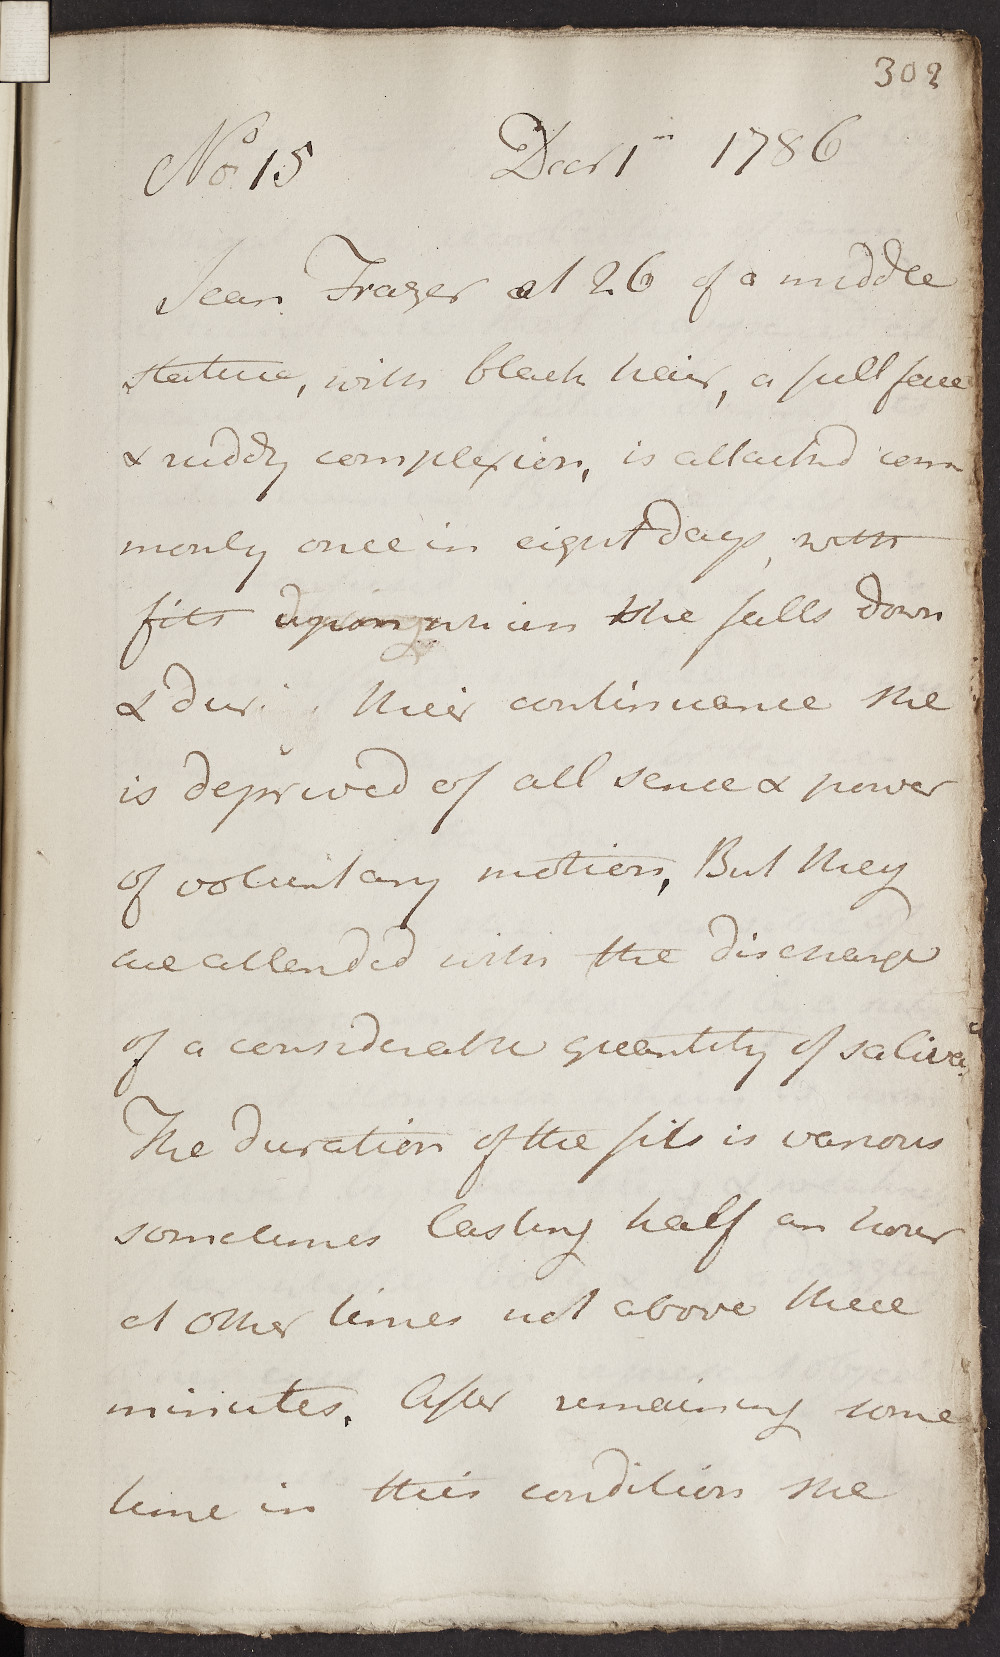 302
No 15 Decr 1st 1786
Jean Frazer æt 26 of a middle
stature, with black hair, a full face
& ruddy complexion, is attacked com
monly once in eight days, with
fits upon which she falls down
& dur their continuance she
is deprived of all sence & power
of voluntary motion, But they
are attended with the discharge
of a considerable quantity of saliva.
The duration of the fits is various
sometimes lasting half an hour
at other times not above three
minutes. After remaining some
time in this condition she